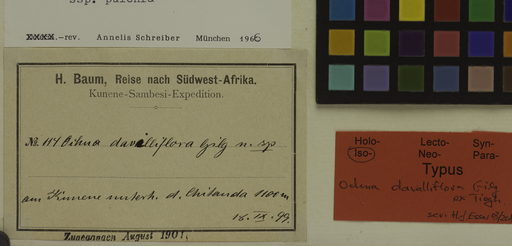 ssp. pulchra
XXXX.-rev. Annelis Schreiber München 1966
H. Baum, Reise nach Südwest-Afrika.
Kunene-Sambesi-Expedition.
No. 114 Ochna davilliflora Gilg n. sp
am Kunene unterh. d. Chitanda 1100 m
16. IX. 99.
Zugegangen August 1901.
Holo- Lecto- Syn-
Iso- Neo- Para-
Typus
Ochna davilliflora Gilg
ex Tiegh.